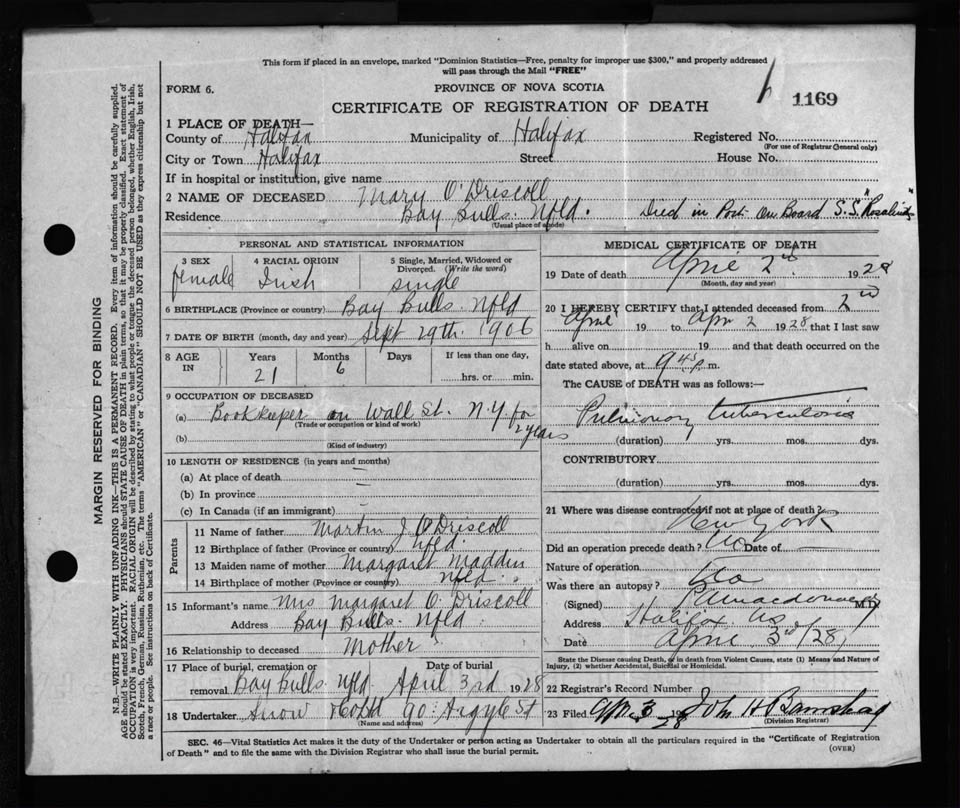 This form if placed in an envelope, marked "Dominion Statistics—Free, penalty for improper use $300," and properly addressed
will pass through the Mail "FREE"
FORM 6.
PROVINCE OF NOVA SCOTIA
CERTIFICATE OF REGISTRATION OF DEATH
1169
1 PLACE OF DEATH—
County of Halifax Municipality of Halifax Registered No.
(For use of Registrar General only)
City or Town Halifax Street House No.
If in hospital or institution, give name
2 NAME OF DECEASED Mary O'Driscoll
Residence Bay Bulls. Nfld. Died in Port On Board S.S. "Rosalind"
(Usual place of abode)
PERSONAL AND STATISTICAL INFORMATION
3 SEX 4 RACIAL ORIGIN 5 Single, Married, Widowed or
Divorced. (Write the word)
female Irish single
6 BIRTHPLACE (Province or country) Bay Bulls. Nfld
7 DATE OF BIRTH (month, day and year) Sept 29th. 1906
8 AGE IN Years Months Days If less than one day,
21 6 hrs. or min.
9 OCCUPATION OF DECEASED
(a) Bookkeeper on Wall St. N.Y. for
2 years
(Trade or occupation or kind of work)
(b)
(Kind of industry)
10 LENGTH OF RESIDENCE (in years and months)
(a) At place of death —
(b) In province —
(c) In Canada (if an immigrant) —
Parents
11 Name of father Martin J. O'Driscoll
12 Birthplace of father (Province or country) Nfld.
13 Maiden name of mother Margaret Madden
14 Birthplace of mother (Province or country) Nfld.
15 Informant's name Mrs Margaret O'Driscoll
Address Bay Bulls. Nfld
16 Relationship to deceased Mother
17 Place of burial, cremation or Date of burial
removal Bay Bulls. Nfld. April 3rd 1928
18 Undertaker Snow & Co Ld 90 Argyle St
(Name and address)
MEDICAL CERTIFICATE OF DEATH
19 Date of death April 2nd 1928
(Month, day and year)
20 I HEREBY CERTIFY that I attended deceased from 2nd
April 19 to Apr 2 1928 that I last saw
h alive on 19 and that death occurred on the
date stated above, at 9 45 p. m.
The CAUSE OF DEATH was as follows:—
Pulmonary tuberculosis
(duration) yrs. mos. dys.
CONTRIBUTORY
(duration) yrs. mos. dys.
21 Where was disease contracted if not at place of death?
New York
Did an operation precede death? No Date of —
Nature of operation
Was there an autopsy? No
(Signed) M.D.
Address Halifax NS
Date April 3rd/28
State the Disease causing Death, or in death from Violent Causes, state (1) Means and Nature of
Injury, (2) whether Accidental, Suicidal or Homicidal.
22 Registrar's Record Number
23 Filed Apr. 3 1928 John H
(Division Registrar)
SEC. 46—Vital Statistics Act makes it the duty of the Undertaker or person acting as Undertaker to obtain all the particulars required in the "Certificate of Registration
of Death" and to file the same with the Division Registrar who shall issue the burial permit.
(OVER)
MARGIN RESERVED FOR BINDING
N.B.—WRITE PLAINLY WITH UNFADING INK—THIS IS A PERMANENT RECORD. Every item of information should be carefully supplied.
AGE should be stated EXACTLY. PHYSICIANS should STATE CAUSE OF DEATH in plain terms, so that it may be properly classified. Exact statement of
OCCUPATION is very important. RACIAL ORIGIN will be described by stating to what people or tongue the deceased person belonged, whether English, Irish,
Scotch, French, German, Russian, Ruthenian, etc. The terms "AMERICAN" or "CANADIAN" SHOULD NOT BE USED as they express citizenship but not
a race or people. See instructions on back of Certificate.